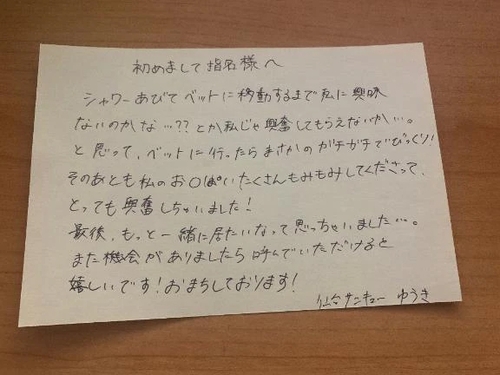 初めまして指名様へ
シャワーあびてベットに移動するまで私に興味
ないのかな…?? とか私じゃ興奮してもらえないか…。
と思って、ベットに行ったらまさかのガチガチでびっくり!
そのあとも私のお○ぱいたくさんもみもみしてくださって、
とっても興奮しちゃいました!
最後、もっと一緒に居たいなって思っちゃいました…。
また機会がありましたら呼んでいただけると
嬉しいです!おまちしております!
仙台サンキュー ゆうき